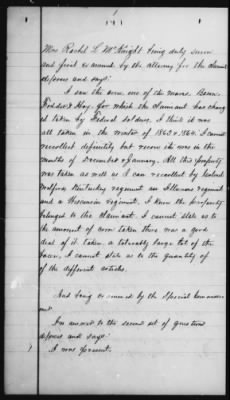 Mrs Rachel L McKnight being duly sworn
and first examined by the attorney for the claimant
deposes and says:
I saw the corn, one of the mares, Bacon,
Fodder & Hay. for which the claimant has charg
ed taken by Federal soldiers. I think it was
all taken in the winter of 1863 & 1864. I cannot
recollect definitely but recon it was in the
months of December & January. All this property
was taken as well as I can recollect by
Kentucky regiment an Illinois regiment
and a Wisconsin regiment. I know the property
belonged to the claimant. I cannot state as to
the amount of corn taken there was a good
deal of it. taken a tolerably large lot of the
bacon. I cannot state as to the quantity of
of the different articles.
And being examined by the Special Commissioner
In answer to the second set of questions
deposes and says:
I was present.